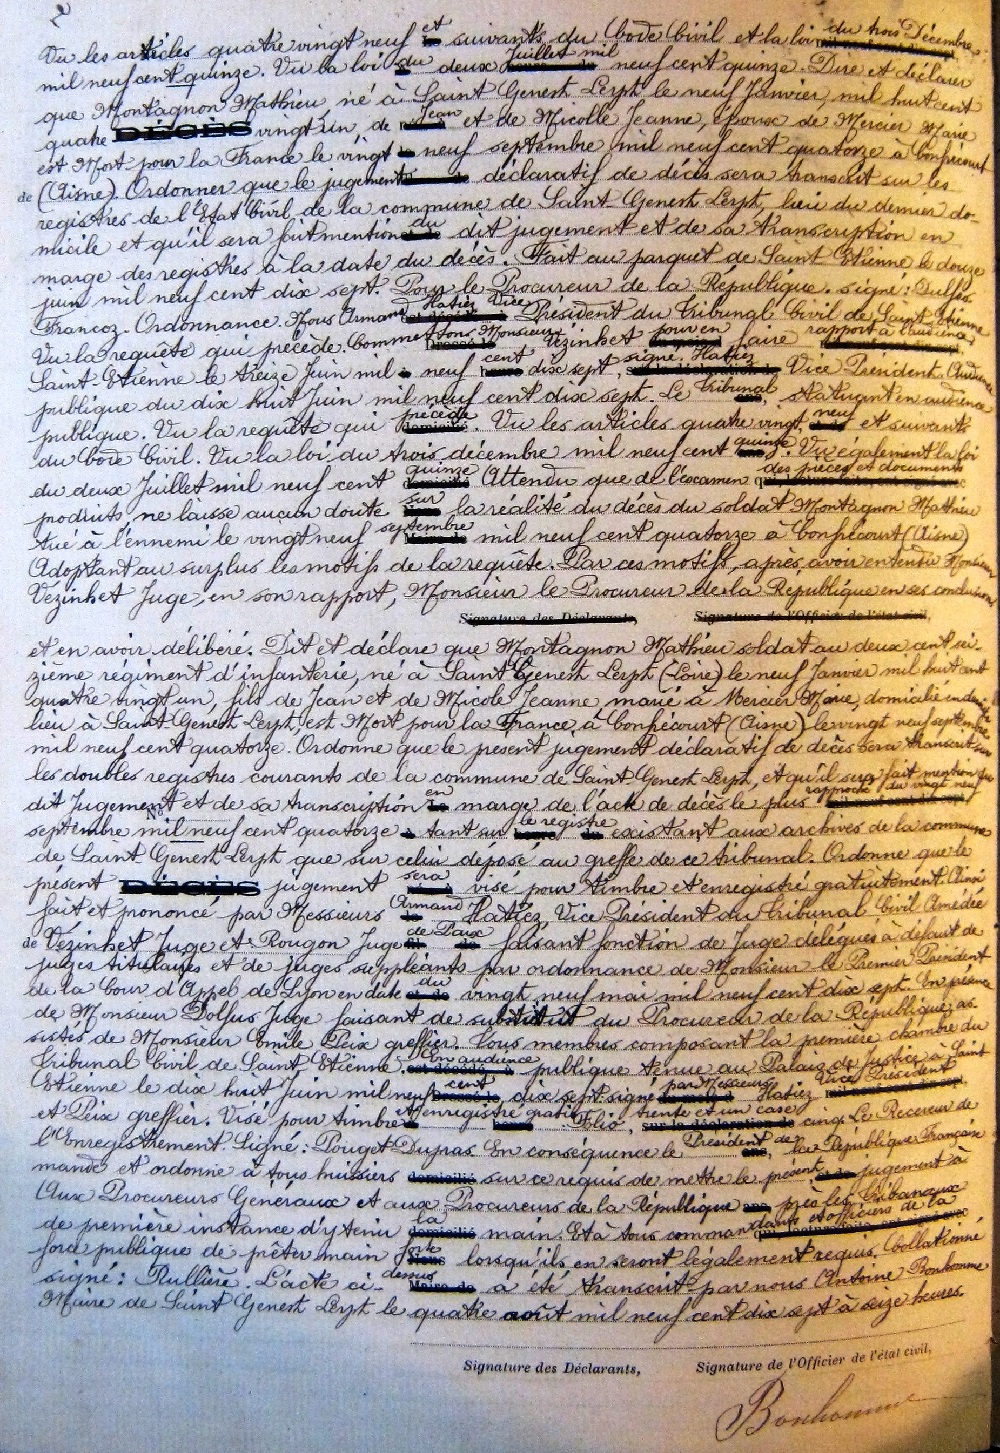 2
Vu les articles quatre vingt neuf et suivants du Code Civil et la loi du trois Décembre
mil neuf cent quinze. Vu la loi du deux Juillet mil neuf cent quinze. Dire et déclarer
que Montagnon Mathieu, né à Saint Genest Lerpt le neuf Janvier, mil huit cent
quatre DÉCÈS vingt un, de Jean et de Micolle Jeanne, époux de Mercier Marie
est Mort pour la France le vingt neuf septembre mil neuf cent quatorze à Confrécourt
de (Aisne). Ordonner que le jugement déclaratif de décès sera transcrit sur les
registres de l'Etat Civil de la commune de Saint Genest Lerpt, lieu du dernier do-
micile et qu'il sera fait mention du dit jugement et de sa transcription en
marge des registres à la date du décès. Fait au parquet de Saint Etienne le douze
juin mil neuf cent dix sept. Pour le Procureur de la République. signé:
Francoz. Ordonnance. Nous Armand Hatiez Vice Président du Tribunal Civil de Saint-Etienne
Vu la requête qui précède. Commettons Monsieur Vezinhet pour en faire rapport à l'audience
Saint-Etienne le treize Juin mil neuf cent dix sept, signé. Hatiez Vice Président. Audience
publique du dix huit Juin mil neuf cent dix sept. Le Tribunal, statuant en audience
publique. Vu la requête qui précède. Vu les articles quatre vingt neuf et suivants
du Code Civil. Vu la loi du trois décembre mil neuf cent quinze. Vu également la loi
du deux Juillet mil neuf cent quinze Attendu que de l'examen des pièces et documents
produits, ne laisse aucun doute sur la réalité du décès du soldat Montagnon Mathieu
tué à l'ennemi le vingt neuf septembre mil neuf cent quatorze à Confrécourt (Aisne)
Adoptant au surplus les motifs de la requête. Par ces motifs, après avoir entendu Monsieur
Vezinhet Juge, en son rapport, Monsieur le Procureur de la République en ses conclusions
Signature des Déclarants, Signature de l'Officier de l'état civil,
et en avoir délibéré. Dit et déclare que Montagnon Mathieu soldat au deux cent sei-
zième régiment d'infanterie, né à Saint Genest Lerpt (Loire) le neuf Janvier mil huit cent
quatre vingt un, fils de Jean et de Micole Jeanne marié à Mercier Marie, domicilié en dernier
lieu à Saint Genest Lerpt, est Mort pour la France, à Confrécourt (Aisne) le vingt neuf septembre
mil neuf cent quatorze. Ordonne que le présent jugement déclaratif de décès sera transcrit sur
les doubles registres courants de la commune de Saint Genest Lerpt, et qu'il sera fait mention du
dit Jugement et de sa transcription en marge de l'acte de décès le plus rapproché du vingt neuf
septembre N° mil neuf cent quatorze tant sur le registre existant aux archives de la commune
de Saint Genest Lerpt que sur celui déposé au greffe de ce tribunal. Ordonne que le
présent DÉCÈS jugement sera visé pour timbre et enregistré gratuitement. Ainsi
fait et prononcé par Messieurs Armand Hatiez, Vice Président du Tribunal Civil Amédée
de Vezinhet Juge et Rougon Juge de Paix faisant fonction de Juge délégués à défaut de
juges titulaires et de juges suppléants par ordonnance de Monsieur le Premier Président
de la Cour d'Appel de Lyon en date du vingt neuf mai mil neuf cent dix sept. En présence
de Monsieur Dolfus Juge faisant de substitut du Procureur de la République, as-
sistés de Monsieur Emile Peix greffier. Tous membres composant la première chambre du
Tribunal Civil de Saint Etienne. En audience publique tenue au Palais de Justice à Saint
Etienne le dix huit Juin mil neuf cent dix sept signé par Messieurs Hatiez Vice Président
et Peix greffier. Visé pour timbre et enregistré gratis Folio, trente et un case cinq. Le Receveur de
l'Enregistrement. Signé: Pouget Dupras En conséquence le Président de la République Française
mande et ordonne à tous huissiers sur ce requis de mettre le présent jugement à
Aux Procureurs Généraux et aux Procureurs de la République près les Tribunaux
de première instance d'y tenir la main. Et à tous commandants et officiers de la
force publique de prêter main forte lorsqu'ils en seront légalement requis. Collationné
signé: Rullière. L'acte ci-dessus a été transcrit par nous Antoine Bonhomme
Maire de Saint Genest Lerpt le quatre août mil neuf cent dix sept à seize heures.
Signature des Déclarants, Signature de l'Officier de l'état civil,
Bonhomme